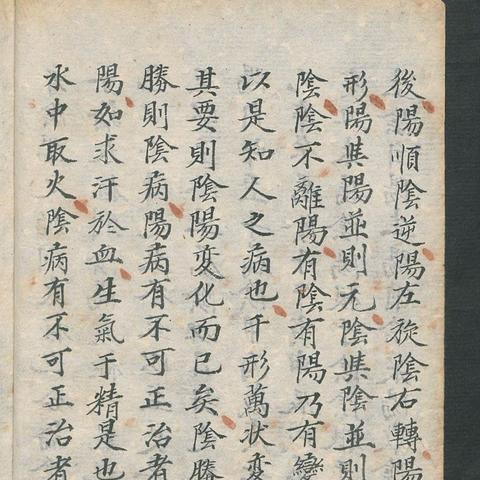 後陽順陰逆陽左旋陰右轉陽
形陽與陽並則无陰與陰並則
陰陰不離陽有陰有陽乃有變
以是知人之病也千形萬状変
其要則陰陽変化而已矣陰勝
勝則陰病陽病有不可正治者
陽如求汗於血生氣于精是也
水中取火陰病有不可正治者